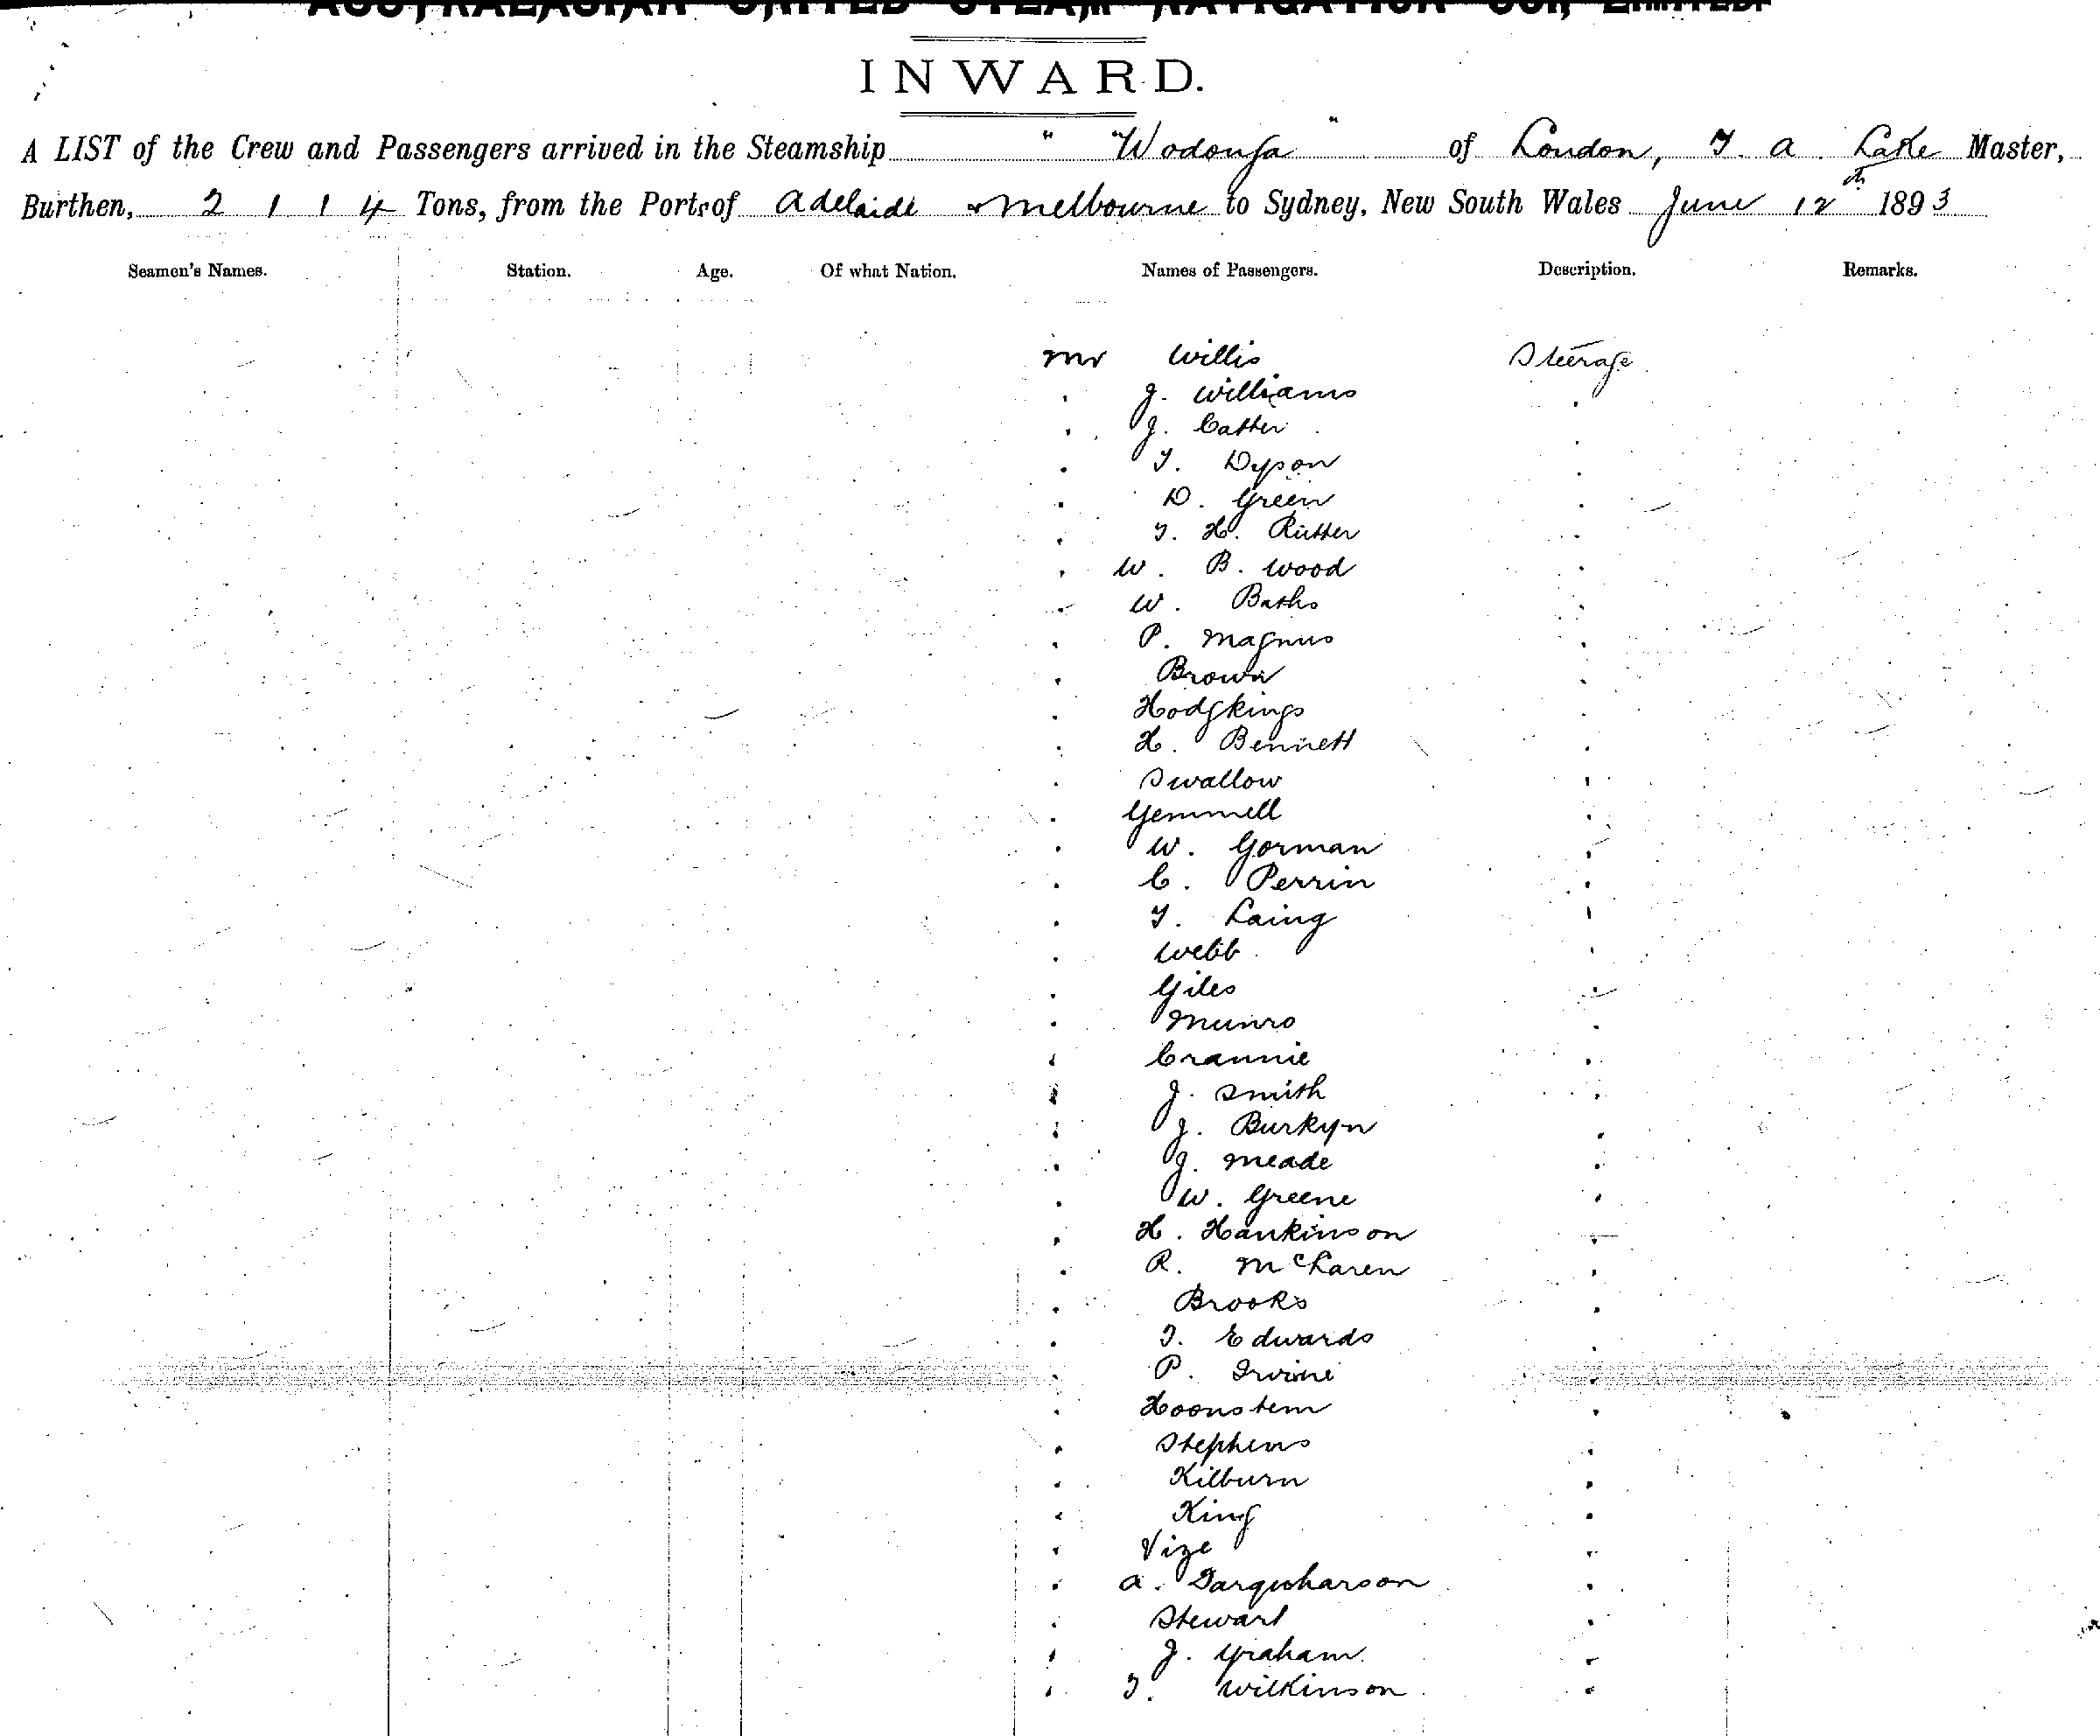 AUSTRALASIAN UNITED STEAM NAVIGATION CO., LIMITED.
INWARD.
A LIST of the Crew and Passengers arrived in the Steamship " Wodonga " of London, T. A. Lake Master,
Burthen, 2114 Tons, from the Ports of Adelaide & Melbourne to Sydney, New South Wales June 12th 1893
Seamen's Names. Station. Age. Of what Nation. Names of Passengers. Description. Remarks.
Mr Willis Steerage
J. Williams
J. Catter
T. Dyson
D. Green
T. H. Rutter
W. B. Wood
W. Baths
P. Magnus
Brown
Hodgkings
H. Bennett
Swallow
Gemmell
W. Gorman
C. Perrin
T. Laing
Webb
Giles
Munro
Crannie
J. Smith
J. Burkyn
J. Meade
W. Greene
H. Hankinson
R. McLaren
Brooks
T. Edwards
P. Irvine
Hoonstem
Stephens
Kilburn
King
Vize
A. Farquharson
Stewart
J. Graham
T. Wilkinson